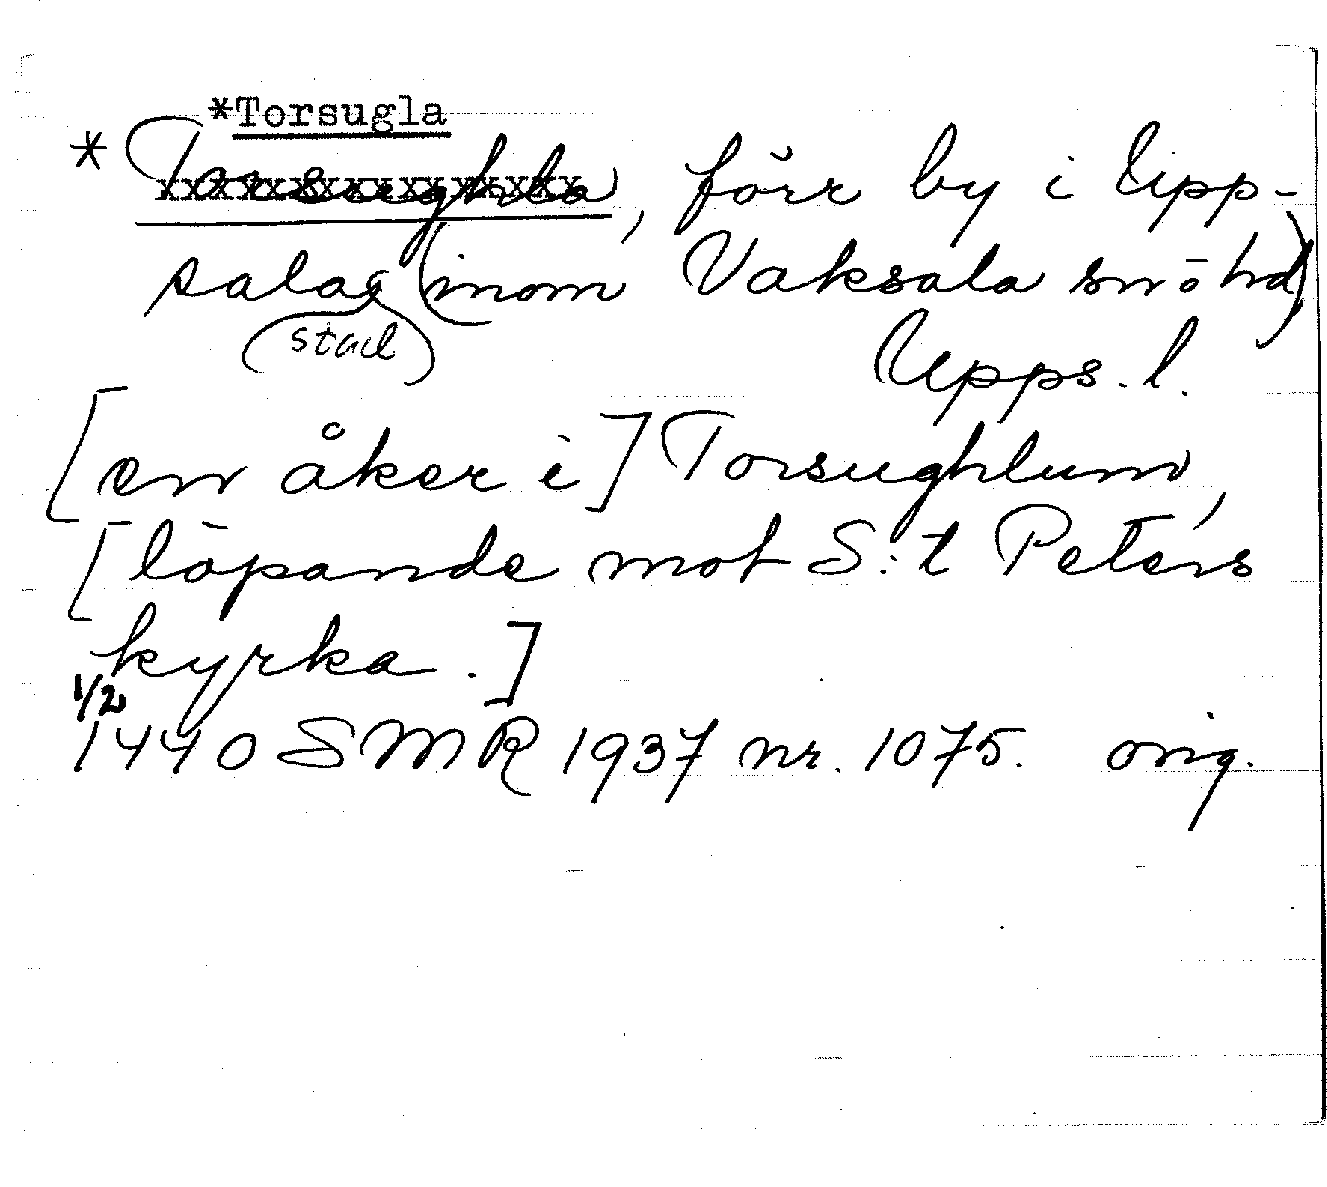 *Torsugla
* Torsughla, förr by i Upp-
sala (inom Vaksala sn o hd)
stad
Upps. l.
[en åker i] Torsughlum,
[löpande mot S:t Peters
kyrka.]
1/2
1440 SMR 1937 nr. 1075. orig.